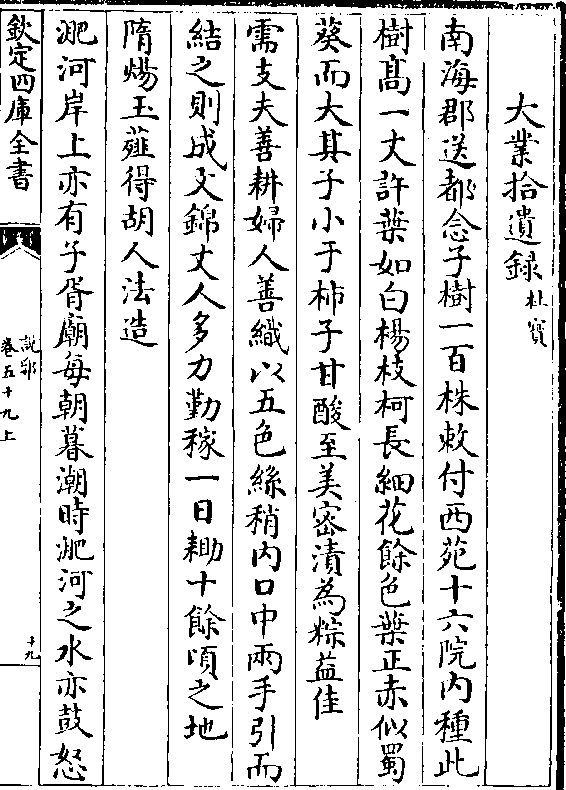 大業拾遺録杜寳
南海郡送都念子樹一百株敕付西苑十六院内種此
樹髙一丈許葉如白楊枝柯長細花餘色葉正赤似蜀
葵而大其子小于柿子甘酸至美宻漬為粽益佳
需支夫善耕婦人善織以五色絲稍内口中兩手引而
結之則成文錦丈人多力勤稼一日耡十餘頃之地
隋煬玉薤得胡人法造
淝河岸上亦有子胥廟每朝暮潮時淝河之水亦鼓怒
欽定四庫全書
說郛
卷五十九上
十九